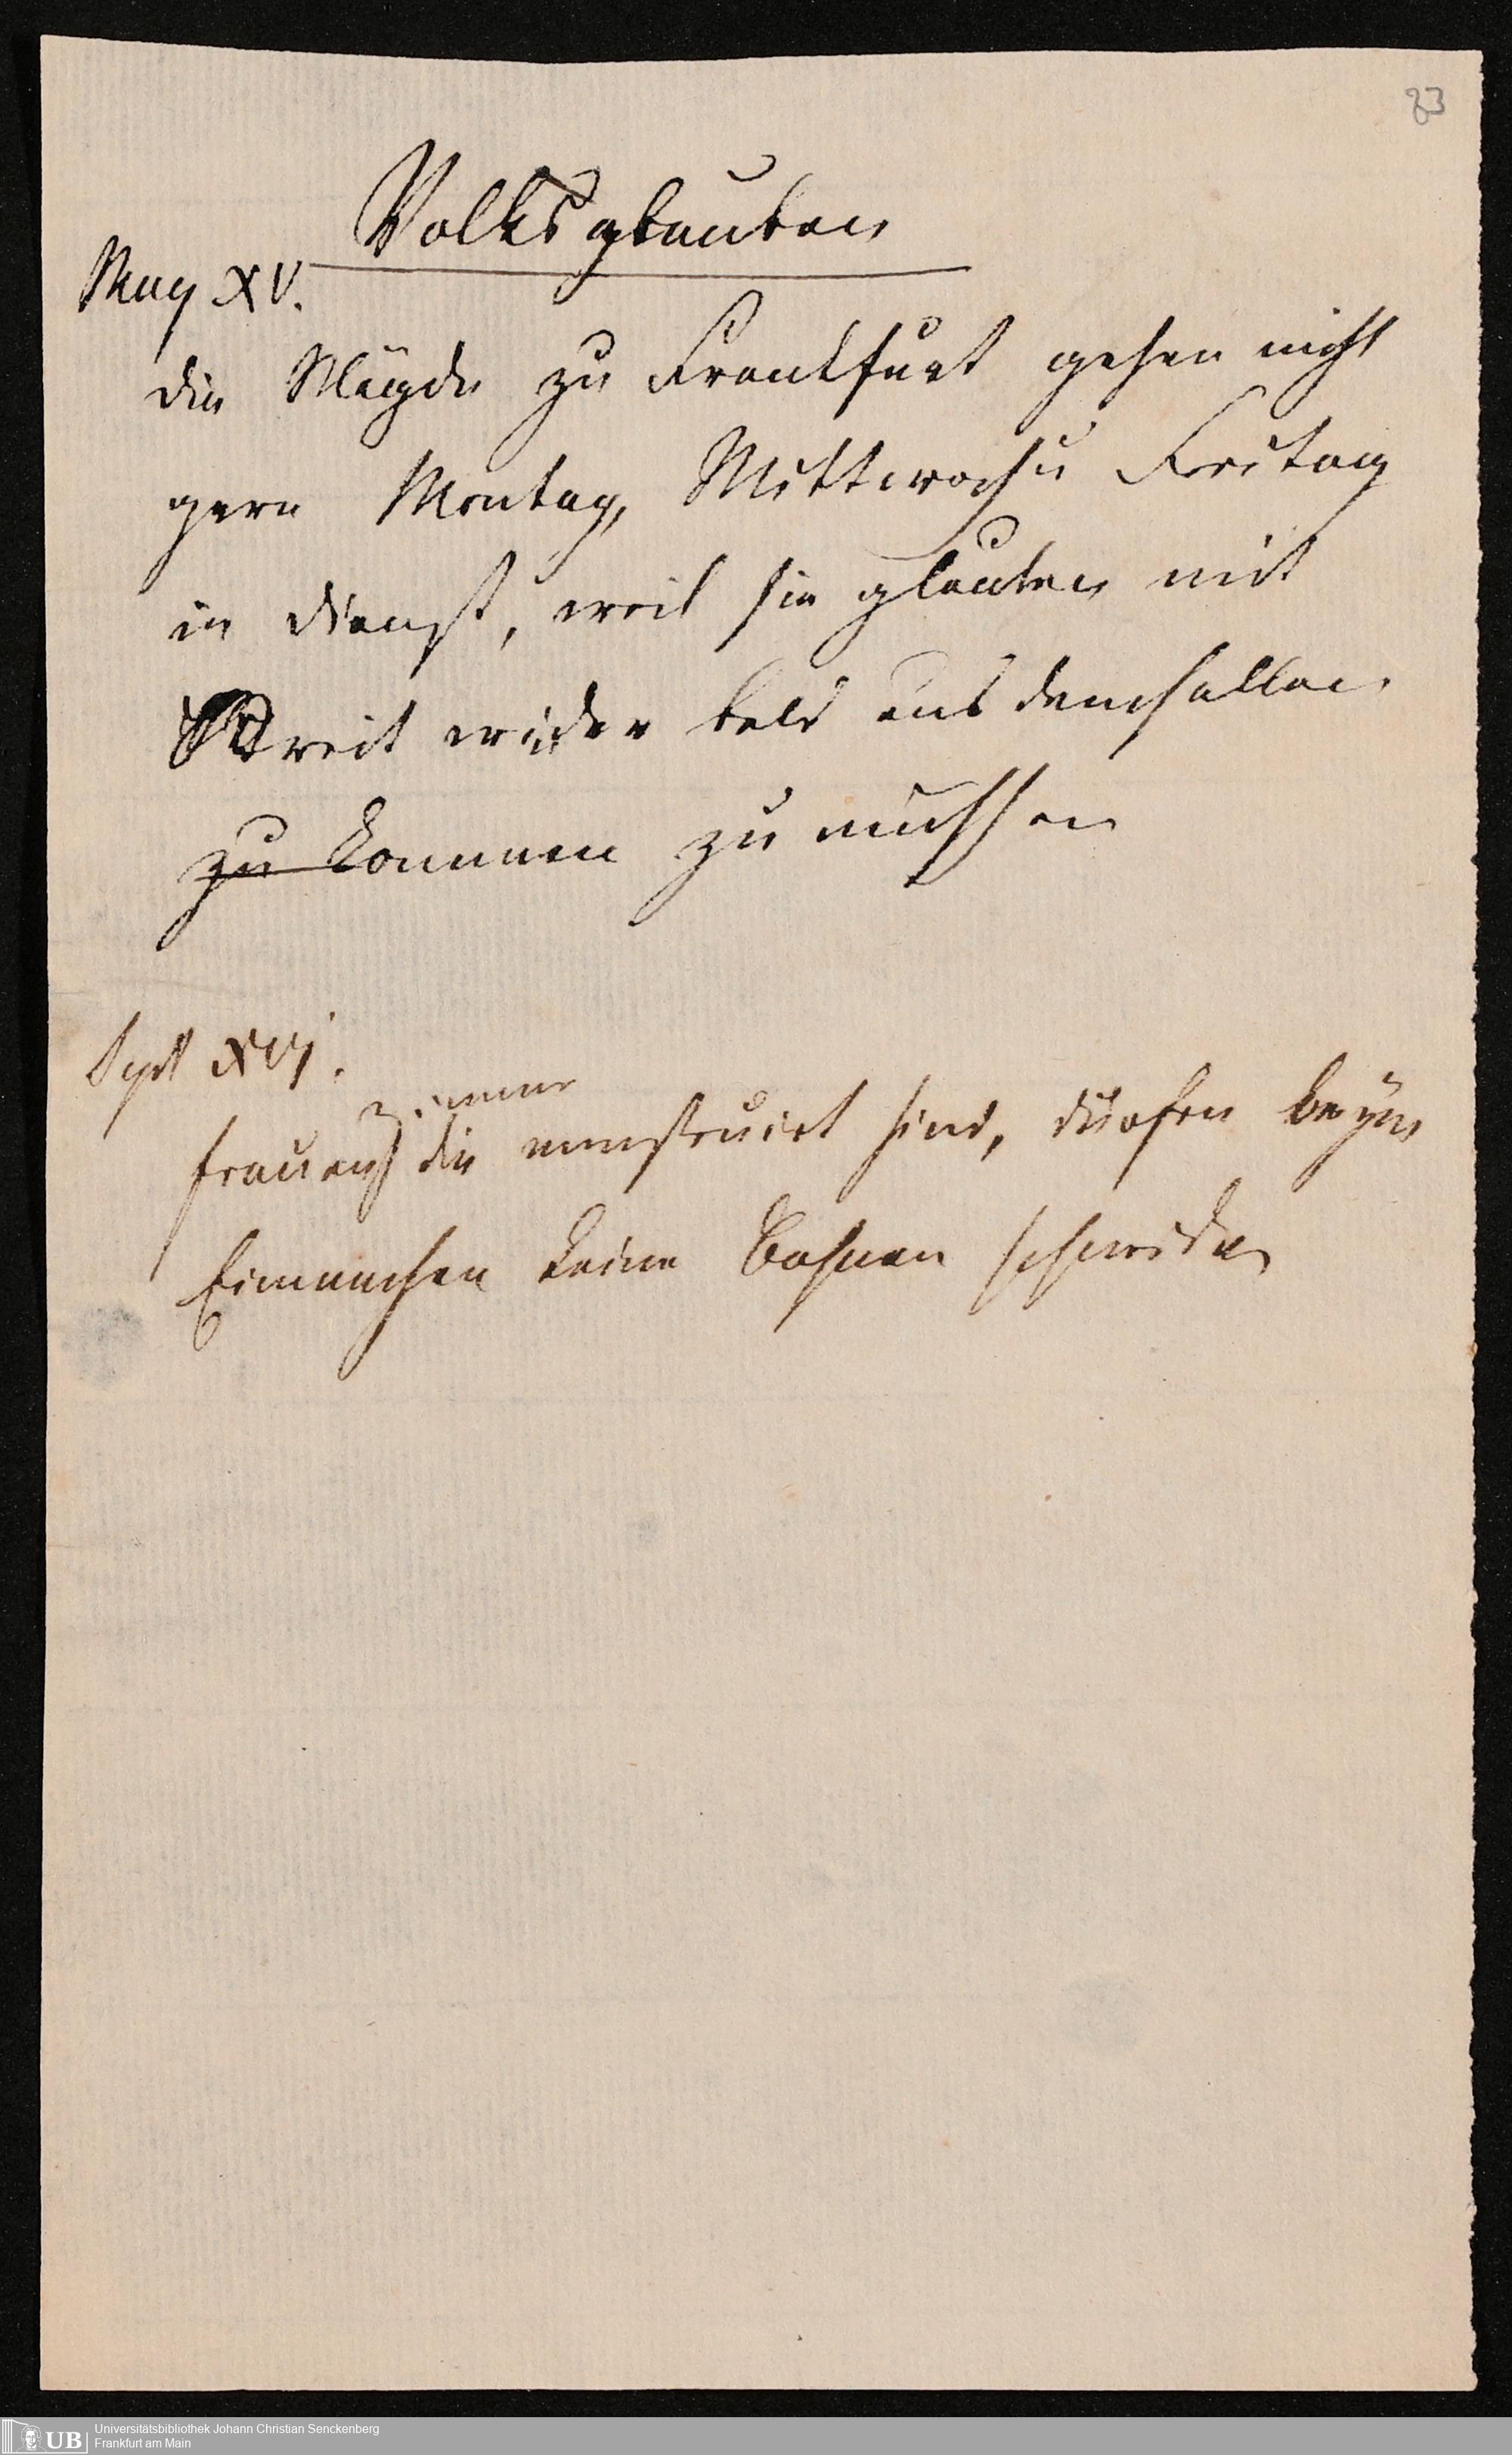 83
Volksglauben
May XV.
die Mägde zu Frankfurt gehen nicht
gern Montag, Mittwoch u Freitag
in Dienst, weil sie glauben mit
Streit wider bald aus demselben
zu kommen zu müssen
Sept XVI.
zimmer
Frauen die menstruirt sind, dürfen beym
Einmachen keine Bohnen schneiden
UB
Universitätsbibliothek Johann Christian Senckenberg
Frankfurt am Main